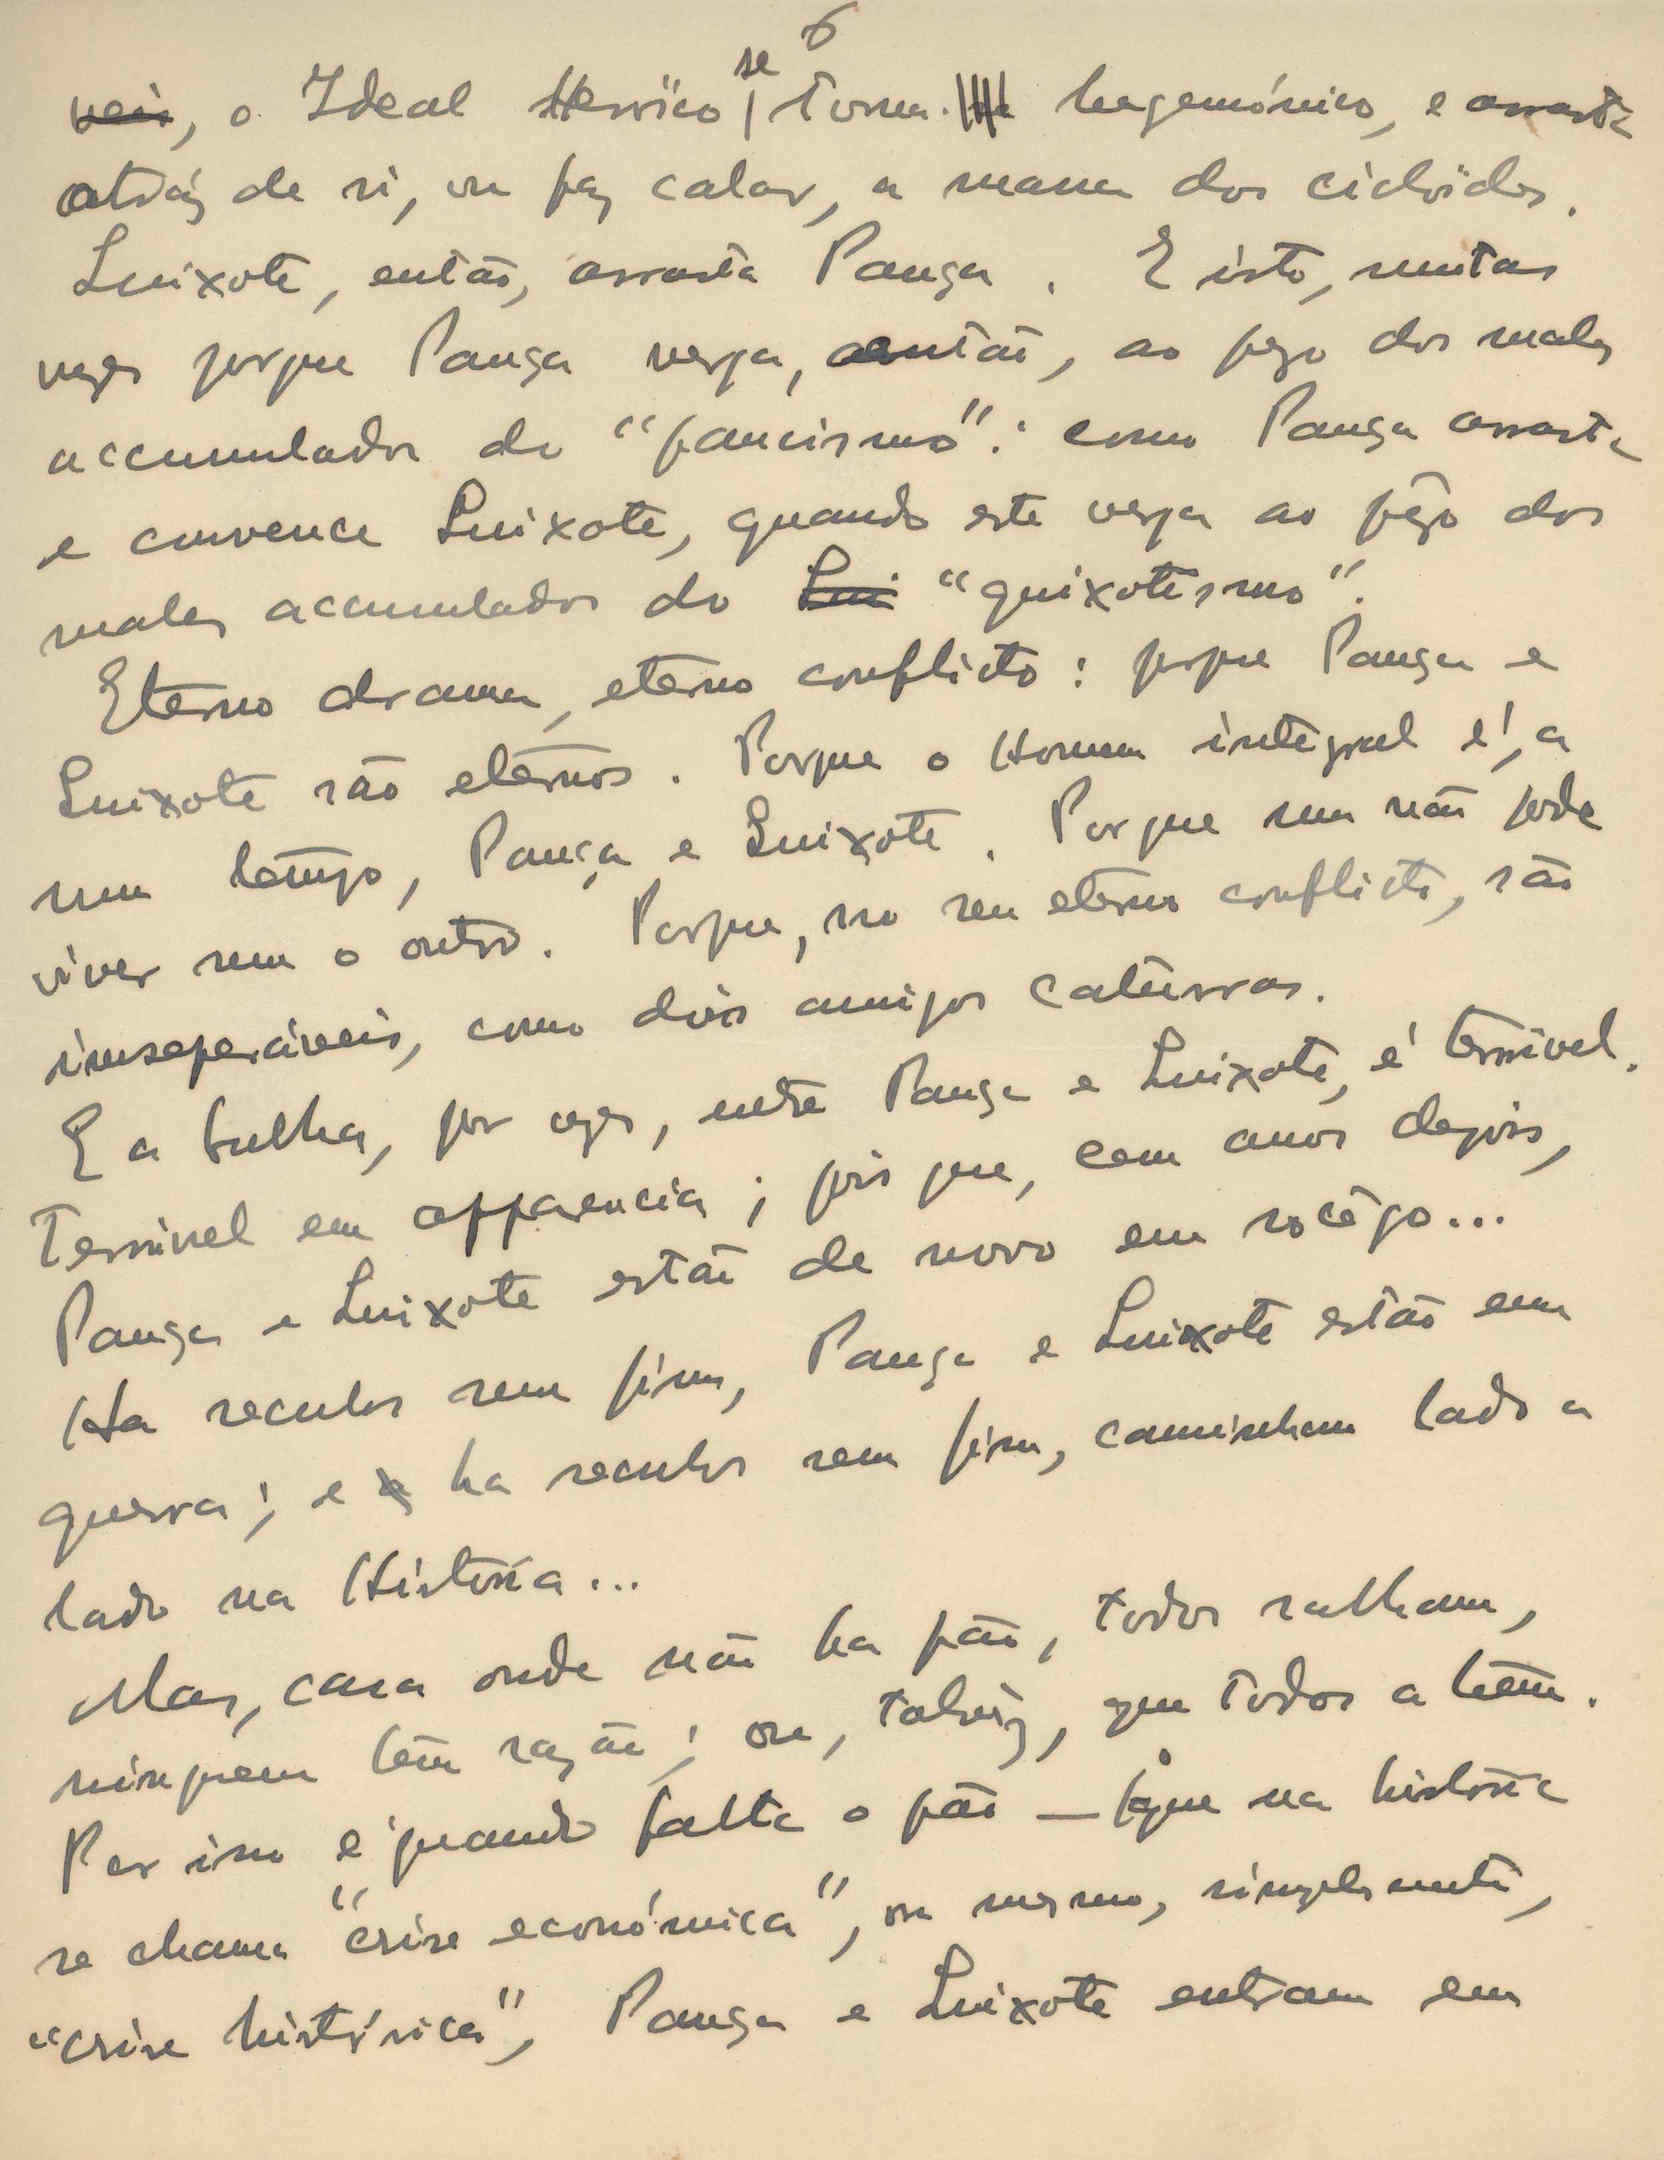 6
veis, o Ideal Heroico se torna hegemónico, e arrasta
atrás de si, ou faz calar, a massa dos cicloides.
Quixote, então, arrasta Pança. E isto, muitas
vezes porque Pança verga, então, ao pezo dos males
accumulados do "pancismo": como Pança arrasta
e convence Quixote, quando este verga ao pêzo dos
males accumulados do Qui "quixotismo".
Eterno drama, eterno conflicto: porque Pança e
Quixote são eternos. Porque o Homem integral é, a
um tempo, Pança e Quixote. Porque um não pode
viver sem o outro. Porque, no seu eterno conflicto, são
inseparáveis, como dois amigos caturras.
E a bulha, por vezes, entre Pança e Quixote, é terrivel.
Terrivel em apparencia; pois que, cem anos depois,
Pança e Quixote estão de novo em socêgo...
Ha seculos sem fim, Pança e Quixote estão em
guerra; e ha seculos sem fim, caminham lado a
lado na História...
Mas, casa onde não ha pão, todos ralham,
ninguem tem razão; ou, talvez, que todos a têm.
Por isso é quando falta o pão — o que na história
se chama "crise económica", ou mesmo, simplesmente,
"crise histórica", Pança e Quixote entram em